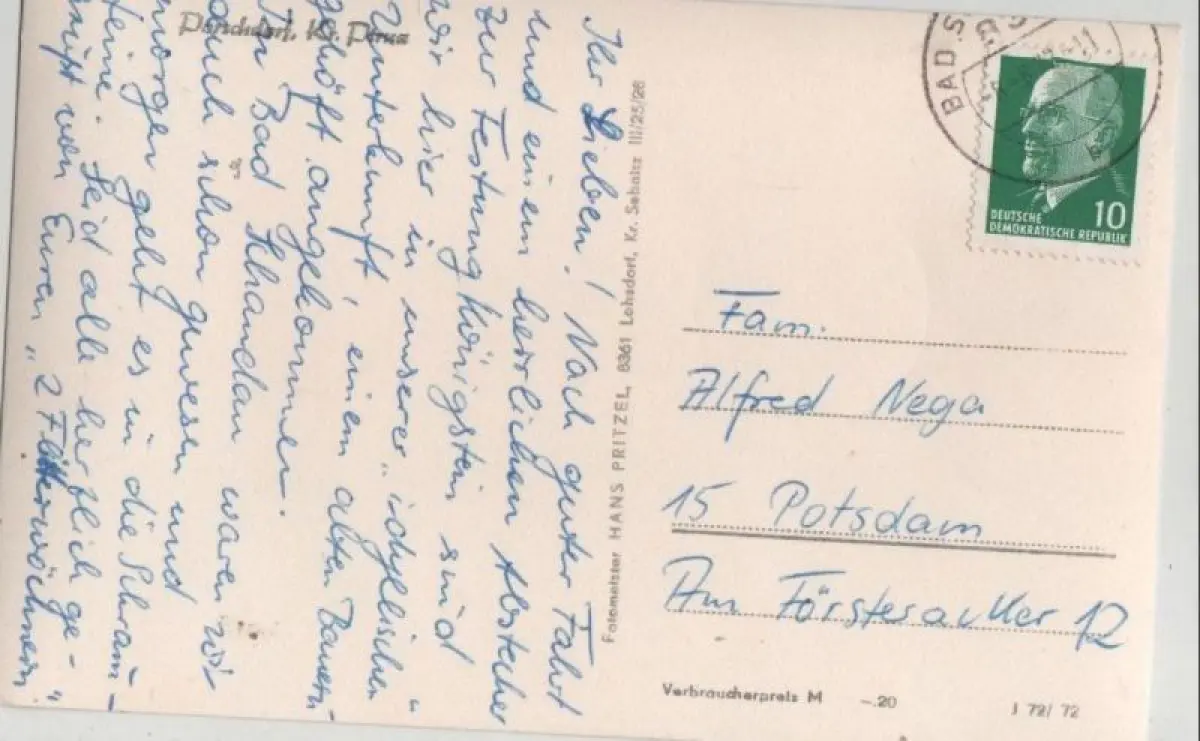 Porschdorf, Kr. Pirna
Ihr Lieben! Nach guter Fahrt
und einem herrlichen Abstecher
zur Festung Königstein sind
wir hier in unserer "idyllischen"
Unterkunft, einem alten Bauern-
gehöft angekommen.
In Bad Schandau waren wir
auch schon gewesen und
morgen geht es in die Schram-
steine. Seid alle herzlich ge-
grüßt von Euren "2 Flitterwöchnern"
Fotomeister HANS PRITZEL, 8361 Lohsdorf, Kr. Sebnitz III/25/26
BAD S
DEUTSCHE
DEMOKRATISCHE REPUBLIK
10
Fam.
Alfred Nega
15 Potsdam
Am Försteracker 12
Verbraucherpreis M -.20
J 72/72